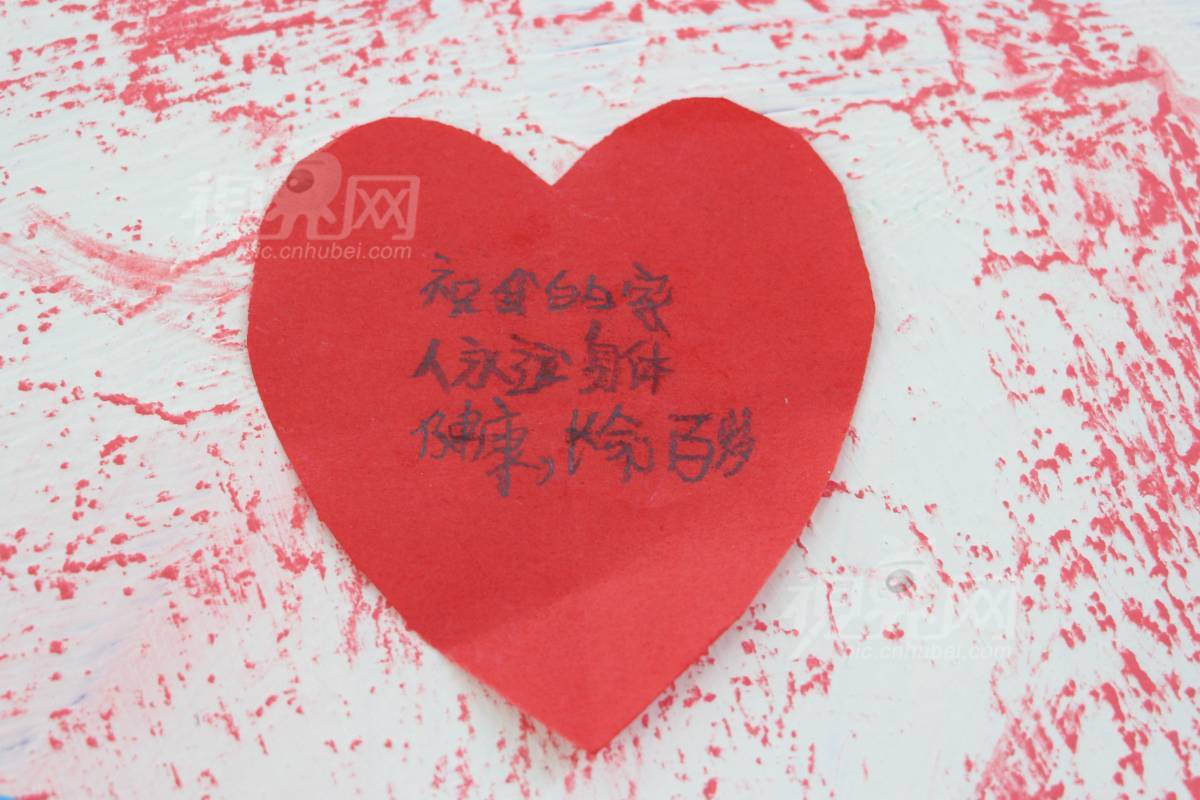 視界网
pic.cnhubei.com
祝全的家
人永远身体
健康,长命百岁
視界网
pic.cnhubei.com